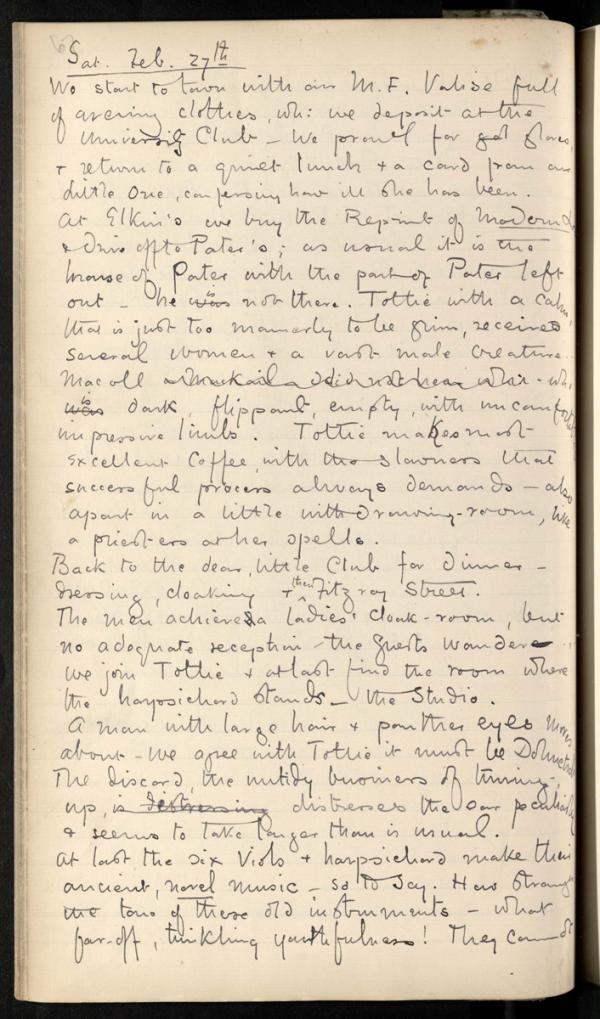 Sat. Feb. 27th
We start to town with our M.F. Valise full
of evening clothes, wh: we deposit at the
University Club – We prowl for gloves,
& return to a quiet lunch & a card from our
Little One, confessing how ill she has been.
At Elkin's we buy the Reprint of Modern
& drive off to Pater's; as usual it is the
house of Pater with the part of Pater left
out – he is not there. Tottie with a calm,
that is just too mannerly to be grim, receives
several women & a vast male creature
Macoll
is dark, flippant, empty, with uncomfortably
impressive limbs. Tottie makes most
excellent Coffee, with the slowness that
successful process always demands – also
apart in a little withdrawing-room, like
a priestess at her spells.
Back to the dear, little Club for dinner –
dressing, cloaking & then Fitzroy Street.
The men achieve a ladies' cloak-room, but
no adequate reception – the guests wander
we join Tottie & at last find the room where
the harpsichord stands – the Studio.
A man with large hair & panther eyes moves
about – we agree with Tottie it must be Dolmetsch
The discord, the untidy business of tuning-
up, is distressing distresses the ear peculiarly
& seems to take longer than is usual.
At last the six Viols & harpsichord make their
ancient, novel music – so to say. How strange
the tone of these old instruments – what
far-off, tinkling youthfulness! They cannot